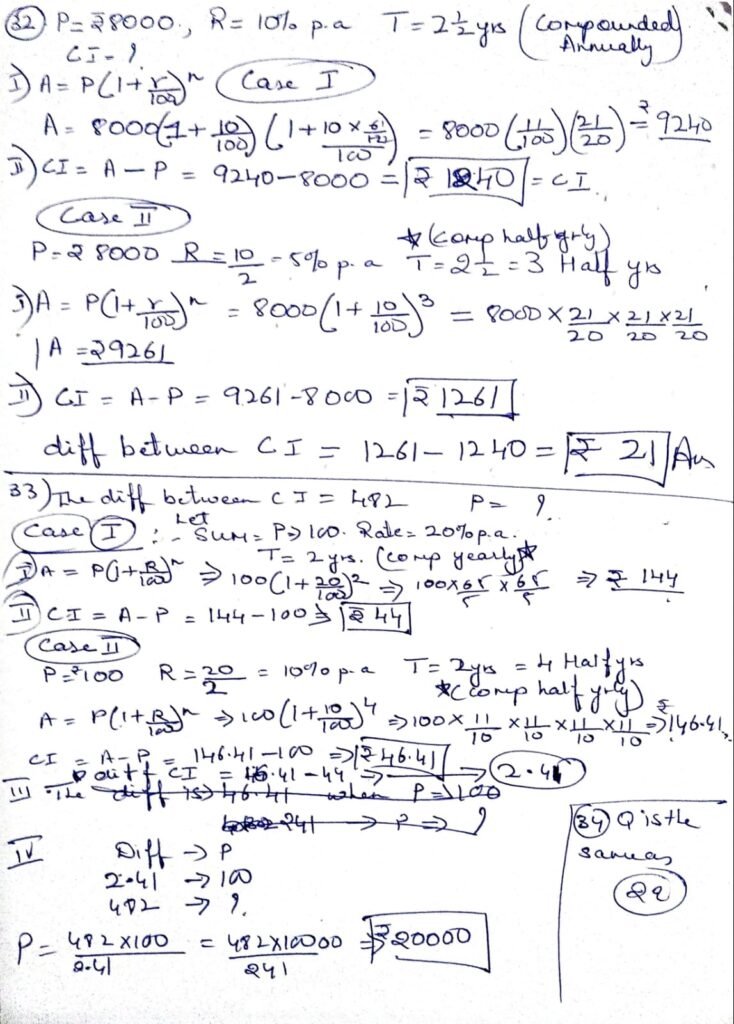 32 P = ₹8000, R = 10% p.a T = 2 1/2 yrs (Compounded Annually)
CI = ?
I) A = P(1 + r/100)^n Case I
A = 8000(1 + 10/100) (1 + 10 × 6/12 / 100) = 8000 (11/100) (21/20) = ₹ 9240
II) CI = A - P = 9240 - 8000 = ₹ 1240 = CI
Case II
P = ₹ 8000 R = 10/2 = 5% p.a T = 2 1/2 = 3 Half yrs *(comp half yrly)
I) A = P(1 + r/100)^n = 8000(1 + 10/100)^3 = 8000 × 21/20 × 21/20 × 21/20
A = ₹9261
II) CI = A - P = 9261 - 8000 = ₹ 1261
diff between CI = 1261 - 1240 = ₹ 21 Ans
33) The diff between CI = 482 P = ?
Case I :- Let Sum = P → 100. Rate = 20% p.a.
T = 2 yrs. (comp yearly)*
I) A = P(1 + R/100)^n ⇒ 100(1 + 20/100)^2 ⇒ 100 × 6/5 × 6/5 ⇒ ₹ 144
II) CI = A - P = 144 - 100 ⇒ ₹ 44
Case II
P = ₹100 R = 20/2 = 10% p.a T = 2 yrs = 4 Half yrs
*(comp half yrly)
A = P(1 + R/100)^n ⇒ 100(1 + 10/100)^4 ⇒ 100 × 11/10 × 11/10 × 11/10 × 11/10 ⇒ ₹146.41
CI = A - P = 146.41 - 100 ⇒ ₹46.41
diff CI = 46.41 - 44 ⇒ 2.41
III The diff is → 46.41 when P ⇒ 100
241 → P ⇒ ?
IV Diff → P
2.41 → 100
482 → ?
P = 482 × 100 / 2.41 = 482 × 10000 / 241 ⇒ ₹20000
34 Q is the
same as
22